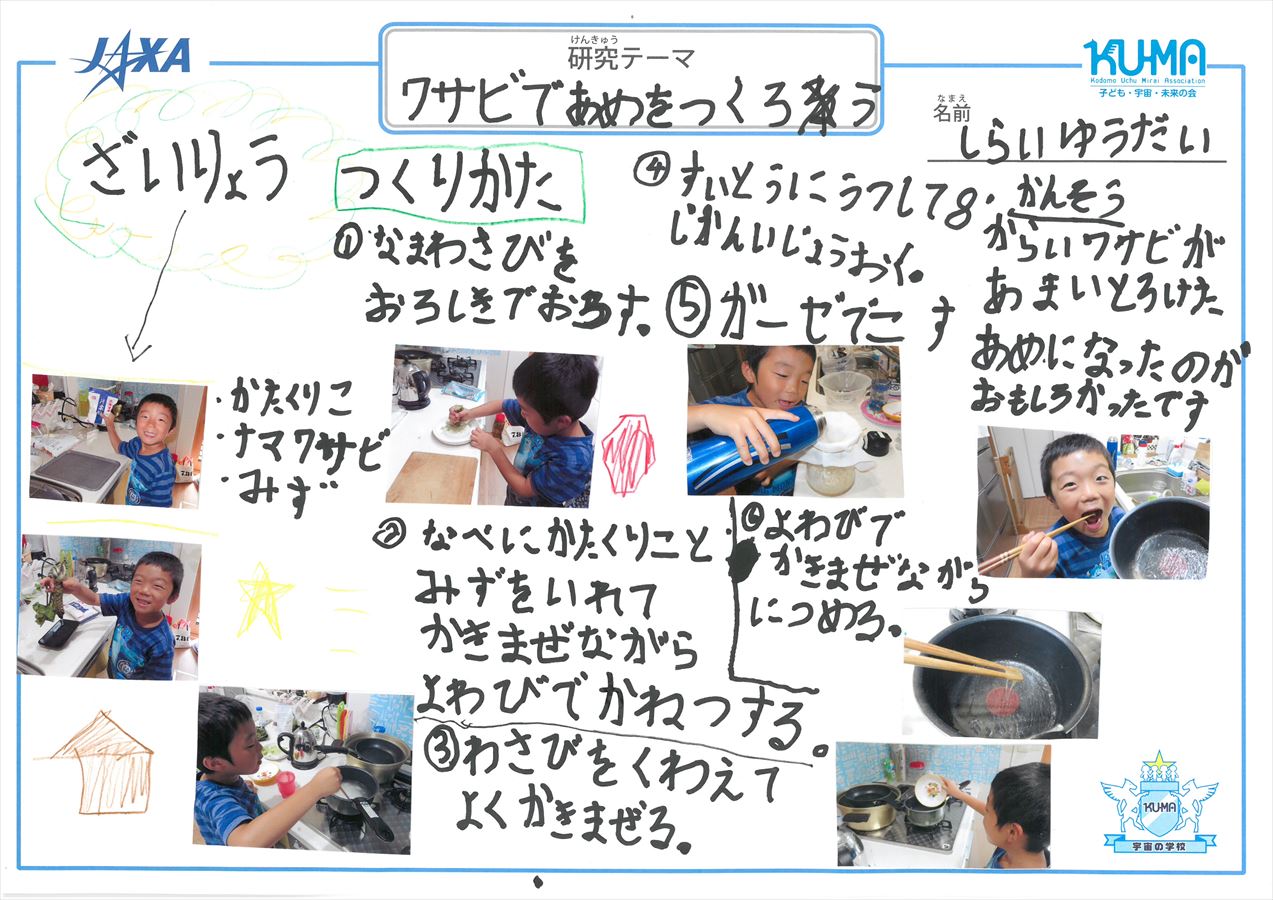 JAXA
けんきゅう
研究テーマ
ワサビであめをつくろう
KU-MA
Kodomo Uchu Mirai Association
子ども・宇宙・未来の会
なまえ
名前
しらいゆうだい
ざいりょう
・かたくりこ
・ナマワサビ
・みず
つくりかた
①なまわさびを
おろしきでおろす。
②なべにかたくりこと
みずをいれて
かきまぜながら
よわびでかねつする。
③わさびをくわえて
よくかきまぜる。
④すいとうにうつして8
じかんいじょうおく。
⑤ガーゼでこす
⑥よわびで
かきまぜながら
につめる。
・かんそう
からいワサビが
あまいとろけた
あめになったのが
おもしろかったです
KU-MA
宇宙の学校